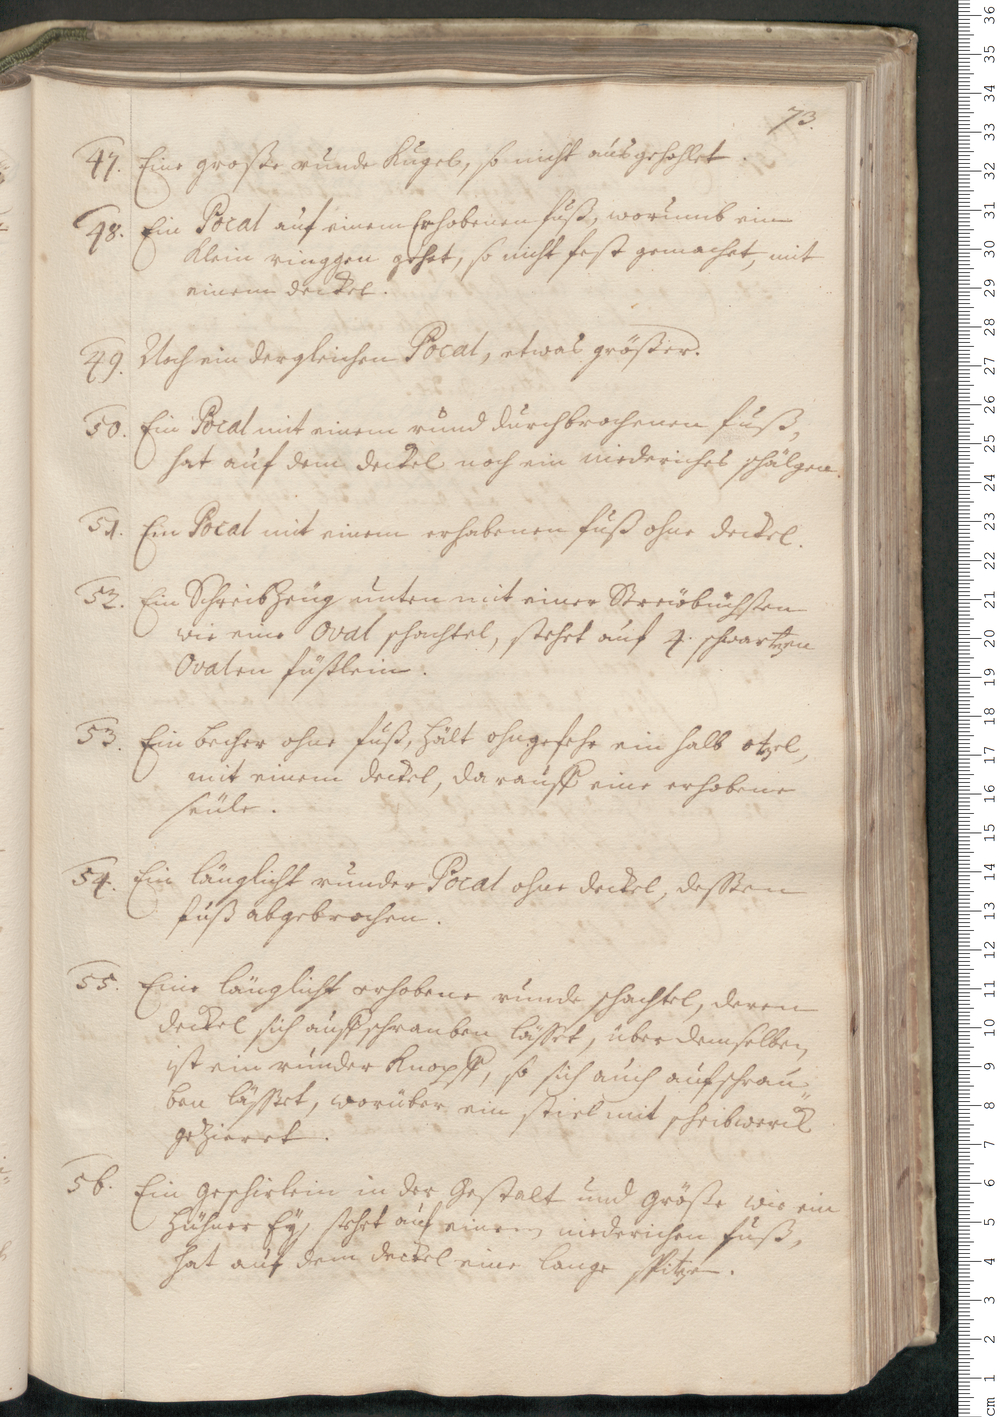 73.
47. Eine große runde Kugel, so nicht ausgehohlet.
48. Ein Pocal auf einem Erhobenen fuß, worumb ein
klein ringgen gehet, so nicht fest gemachet, mit
einem deckel.
49. Noch ein dergleichen Pocal, etwas größer.
50. Ein Pocal mit einem rund durchbrochenen fuß,
hat auf dem deckel noch ein niederiches schälgen.
51. Ein Pocal mit einem erhabenen fuß ohne deckel.
52. Ein Schreibzeug unten mit einer Streübüchsen
wie eine Oval schachtel, stehet auf 4. schwartzen
Ovalen füßlein.
53. Ein becher ohne fuß, hält ohngefehr ein halb ötzel,
mit einem deckel, darauff eine erhobene
seüle.
54. Ein länglicht runder Pocal ohne deckel, deßen
fuß abgebrochen.
55. Eine länglicht erhobene runde schachtel, deren
deckel sich auffschrauben läßet, über demselben
ist ein runder Knopff, so sich auch aufschrau-
ben läßet, worüber ein stiel mit scheibwerck
gezieret.
56. Ein geschirlein in der Gestalt und größe wie ein
Hühner Ey, stehet auf einem niederichen fuß,
hat auf dem deckel eine lange spitze.
36
35
34
33
32
31
30
29
28
27
26
25
24
23
22
21
20
19
18
17
16
15
14
13
12
11
10
9
8
7
6
5
4
3
2
1
cm